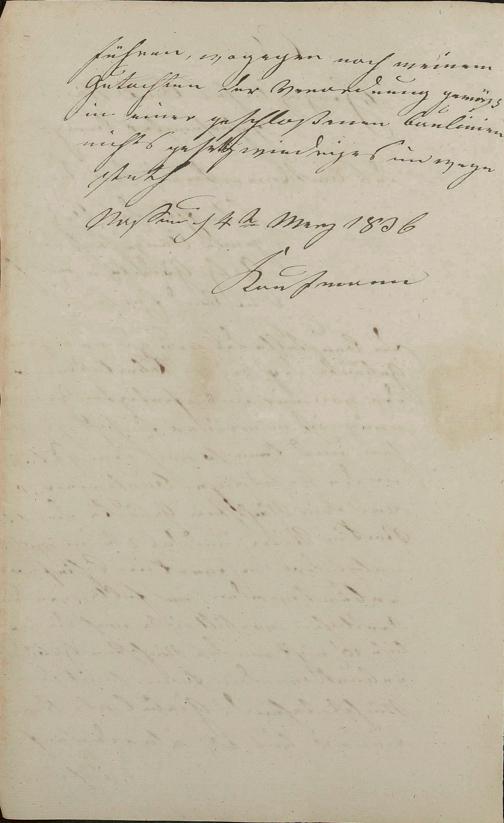 führen, wogegen nach meinem
Gutachten der Verordnung gemäß
in einer geschloßenen Baulinien
nichts gesetzwiedriges im wege
steht
Nassau d 4t Merz 1836
Kaufmann